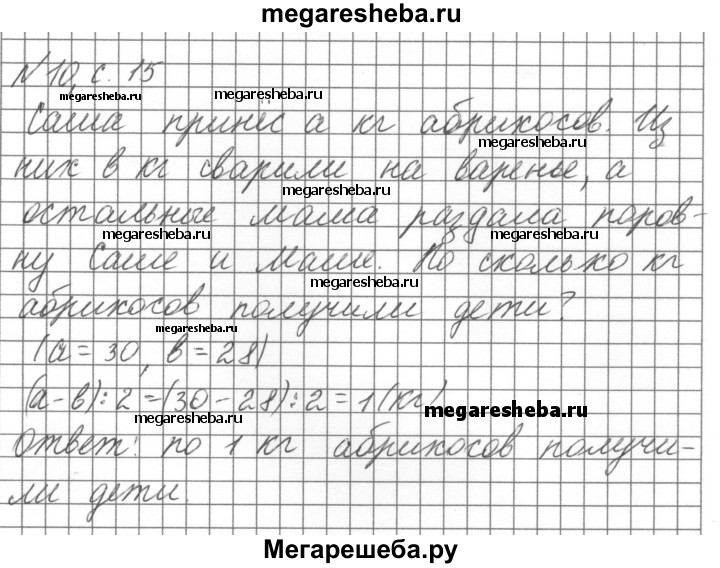 megaresheba.ru
№10, с. 15
megaresheba.ru megaresheba.ru
Саша принёс а кг абрикосов. Из
megaresheba.ru
них в кг сварили на варенье, а
megaresheba.ru
остальные мама раздала поров-
megaresheba.ru megaresheba.ru
ну Саше и Маше. По сколько кг
megaresheba.ru
абрикосов получили дети?
megaresheba.ru
(а = 30, в = 28)
(а-в):2=(30-28):2=1(кг)
megaresheba.ru megaresheba.ru
Ответ: по 1 кг абрикосов получи-
ли дети.
Мегарешеба.ру